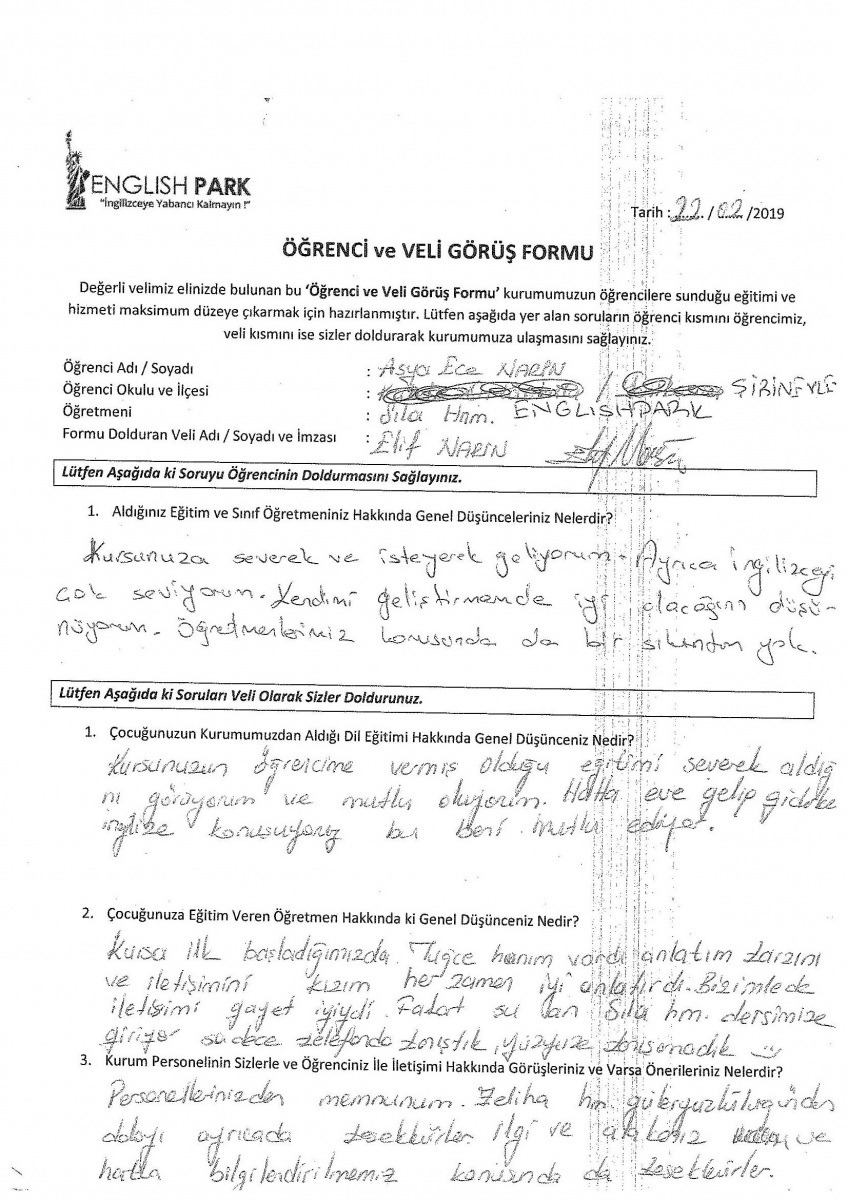 ENGLISH PARK
"İngilizceye Yabancı Kalmayın !"
Tarih : 22 / 02 /2019
ÖĞRENCİ ve VELİ GÖRÜŞ FORMU
Değerli velimiz elinizde bulunan bu 'Öğrenci ve Veli Görüş Formu' kurumumuzun öğrencilere sunduğu eğitimi ve
hizmeti maksimum düzeye çıkarmak için hazırlanmıştır. Lütfen aşağıda yer alan soruların öğrenci kısmını öğrencimiz,
veli kısmını ise sizler doldurarak kurumumuza ulaşmasını sağlayınız.
Öğrenci Adı / Soyadı : Asya Ece NARİN
Öğrenci Okulu ve İlçesi : / ŞİRİNEVLE
Öğretmeni : Sıla Hnm. ENGLISHPARK
Formu Dolduran Veli Adı / Soyadı ve İmzası : Elif NARİN
Lütfen Aşağıda ki Soruyu Öğrencinin Doldurmasını Sağlayınız.
1. Aldığınız Eğitim ve Sınıf Öğretmeniniz Hakkında Genel Düşünceleriniz Nelerdir?
Kursunuza severek ve isteyerek geliyorum. Ayrıca ingilizceyi
çok seviyorum. Kendimi geliştirmemde iyi olacağını düşü-
nüyorum. Öğretmenlerimiz konusunda da bir sıkıntım yok.
Lütfen Aşağıda ki Soruları Veli Olarak Sizler Doldurunuz.
1. Çocuğunuzun Kurumumuzdan Aldığı Dil Eğitimi Hakkında Genel Düşünceniz Nedir?
Kursunuzun öğrencime vermiş olduğu eğitimi severek aldığı
nı görüyorum ve mutlu oluyorum. Hatta eve gelip giderke
ingilizce konuşuyoruz bu beni mutlu ediyor.
2. Çocuğunuza Eğitim Veren Öğretmen Hakkında ki Genel Düşünceniz Nedir?
Kursa ilk başladığımızda Tuğçe hanım vardı anlatım tarzını
ve iletişimini kızım her zaman iyi anlatırdı. Bizimlede
iletişimi gayet iyiydi. Fakat şu an Sıla hm. dersimize
giriyor sadece telefonda konuştuk, yüzyüze konuşmadık
3. Kurum Personelinin Sizlerle ve Öğrenciniz İle İletişimi Hakkında Görüşleriniz ve Varsa Önerileriniz Nelerdir?
Personellerinizden memnunum. Zeliha hm. güleryüzlülüğünden
dolayı ayrıcada teşekkürler ilgi ve alakanız ve
hatta bilgilendirilmemiz konusunda da teşekkürler.